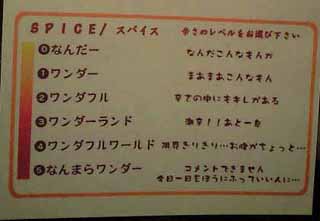 SPICE/スパイス 辛さのレベルをお選び下さい
0 なんだー なんだこんなもんか
1 ワンダー まあまあこんなもん
2 ワンダフル 辛さの中にもキレがある
3 ワンダーランド 激辛!!あと一歩
4 ワンダフルワールド 限界ぎりぎり…お腹がちょっと…
5 なんまらワンダー コメントできません
今日一日をぼうにふっていい人に…